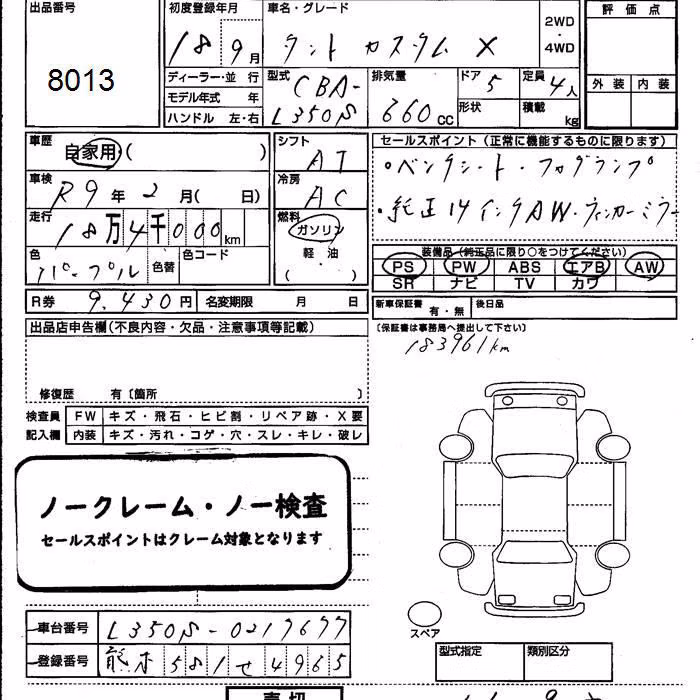 出品番号 初度登録年月 車名・グレード 評価点
8013 18 9月 タント カスタム X 2WD・4WD
ディーラー・並行 型式 排気量 ドア 定員 外装 内装
モデル年式 年 CBA- 5 4人
ハンドル 左・右 L350S 660cc 形状 積載 kg
車歴 自家用( ) シフト AT セールスポイント(正常に機能するものに限ります)
車検 R9年2月( 日) 冷房 AC ・ベンチシート・フォグランプ
走行 18万4千000km 燃料 ガソリン ・純正14インチAW・ウィンカーミラー
色 パープル 色替 色コード 軽・油 ( ) 装備品(純正品に限り○をつけてください)
PS PW ABS エアB AW
SR ナビ TV カワ
R券 9,430円 名変期限 月 日 新車保証書 有・無 後日品
出品店申告欄(不良内容・欠品・注意事項等記載) (保証書は事務局へ提出して下さい)
183961km
修復歴 有〔箇所 〕
検査員 FW キズ・飛石・ヒビ割・リペア跡・X要
記入欄 内装 キズ・汚れ・コゲ・穴・スレ・キレ・破レ
ノークレーム・ノー検査
セールスポイントはクレーム対象となります
スペア
車台番号 L350S-0217677
登録番号 熊本581せ4965
型式指定 類別区分